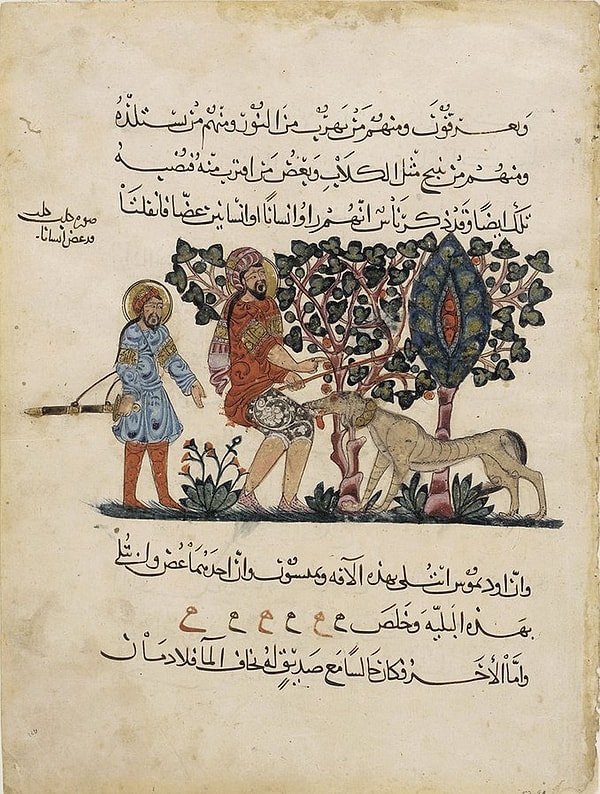 ويعرقون ومنهم من يهرب من النور ومنهم من يستلذه
ومنهم من ينبح مثل الكلاب ويعض من اقترب منه فيصيبه
تلك ايضا وقد ذكر ناس انهم راوا انسانا او انسانين عضا فانفلتا
صورة كلب كلب
قد عض انسانا
وان اوديموس ابتلى بهذه الآفه وثميسون وان احدهما عض وابتلى
بهذه البليه وخلص ه ه ه ه ه ه
واما الآخر فكان جالسا مع صديق له يخاف الما فلادمان